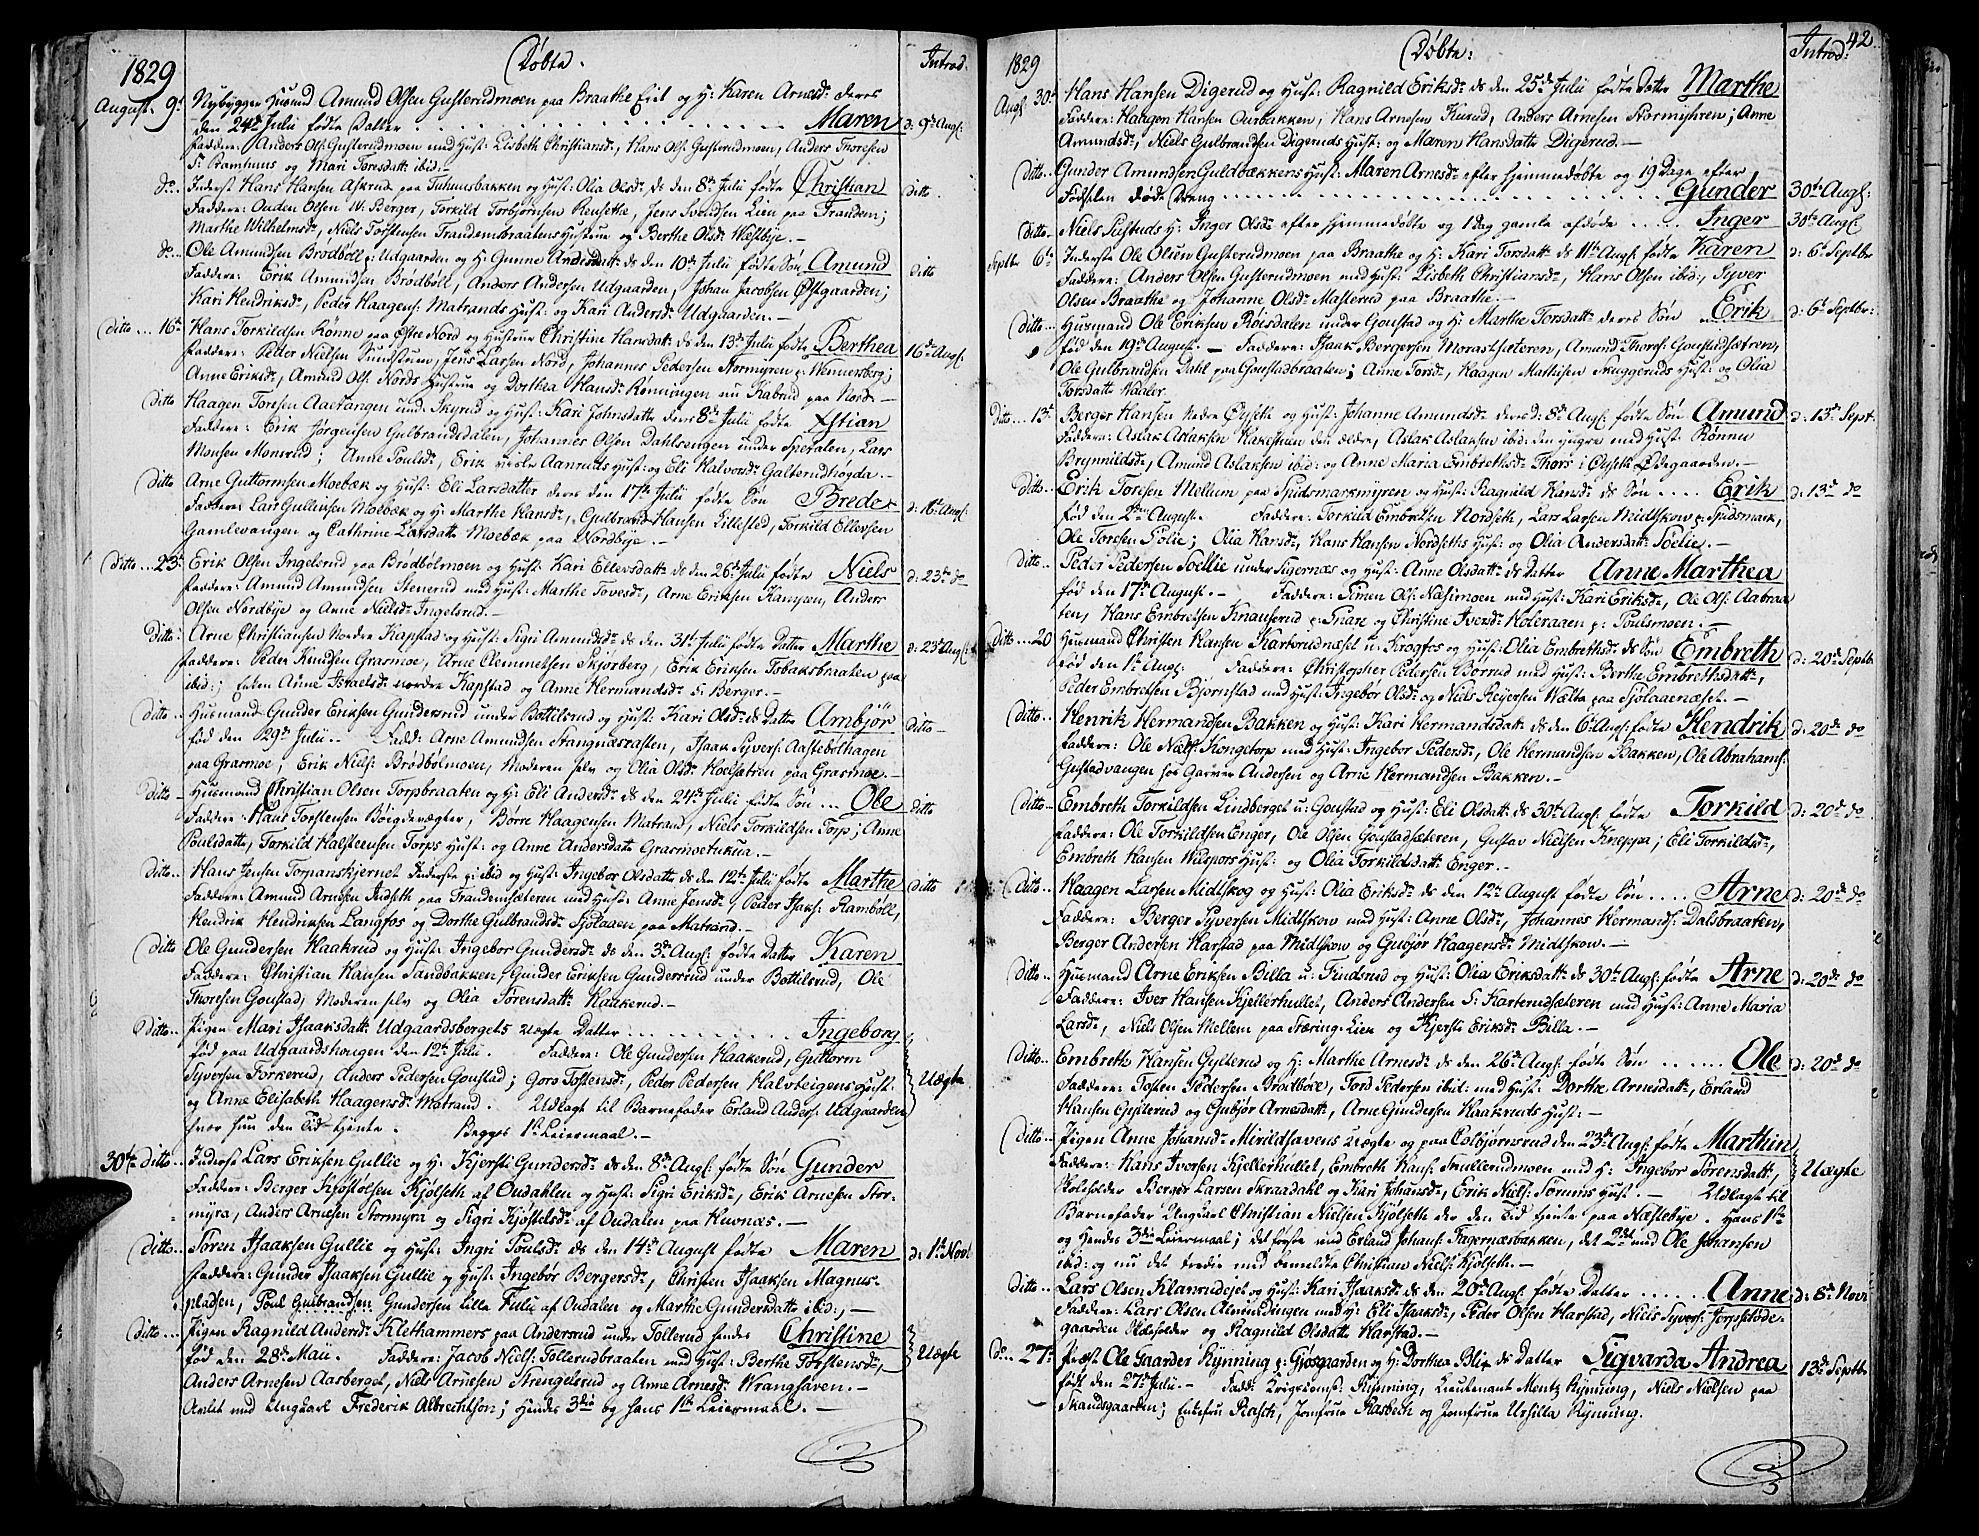 1829 Døbte. Introd.
August. 9de Nybygger Husmd Amund Olsen Gusterudmoen paa Braathe Eiet og H: Karen Arnesd: deres
den 24de Julii fødte Datter . . . Maren d: 9de Augs:
Faddere: Anders Ols: Gusterudmoen med Hust: Lisbeth Christiansd:, Hans Ols: Gusterudmoen, Anders Thoresen
S: Ramsnus og Mari Torsdatt: ibid: —
do... Inderst Hans Hansen Askrud paa Tuhuusbakken og Hust: Olia Olsd: ds den 8de Julii fødte Christian Ditto
Faddere: Ouden Olsen N: Berger, Torkild Torbjørnsen Rensethe, Jens Svendsen Lien paa Trandem;
Marthe Wilhelmsd:, Niels Torstensen Trandembraatens Hustrue og Berthe Olsd: Westbye. —
do... Ole Amundsen Brødbøll p: Udgaarden og H: Gunne Andersdatt: ds den 10de Julii fødte Søn Amund Ditto
Faddere: Erik Amundsen Brødbøll, Anders Andersen Udgaarden, Johan Jacobsen Østgaarden;
Kari Hendriksd:, Peder Haagens: Matrands Hust: og Kari Andersd: Udgaarden. —
Ditto... 16de Hans Torkildsen Rønne paa Østre Nord og Hustrue Christine Hansdatt: ds den 13de Julii fødte Berthea 16de Augs:
Faddere: Peder Nielsen Sundstuen, Jens Larsen Nord, Johannes Pedersen Stormyren p: Wennersberg;
Anne Eriksd:, Amund Ols: Nords Hustrue og Dorthea Hansd: Rønningen nu Kabrud paa Nord —
Ditto Haagen Toresen Aaevangen und: Skyrud og Hust: Kari Johnsdatte dens 8de Julii fødte Xstian
Faddere: Erik Jørgensen Gulbrandsdalen, Johannes Olsen Dahlsengen under Speralen, Lars
Monsen Monsrud; Anne Pouls:, Erik vestre Aanruds Hust: og Eli Halvorsd: Galterudhøgda. —
Ditto Arne Guttormsen Moebæk og Hust: Eli Larsdatter deres den 17de Julii fødte Søn Brede d: 16de Augs:
Faddere: Lars Gulliksen Moebæk og H: Marthe Hansd:, Gulbrand Hansen Lillested, Torkild Ellevsen
Gamlevangen og Cathrine Larsdatt: Moebæk paa Nordbye. —
Ditto... 23de Erik Olsen Ingelsrud paa Brødbølmoen og Hust: Kari Ellevsdatt: ds den 26de Julii fødte Niels d: 23de do
Faddere: Amund Amundsen Stenerud med Hust: Marthe Tovesd:, Arne Eriksen Kampen, Anders
Olsen Nordbye og Anne Nielsd: Ingelsrud. —
Ditto: Arne Christiansen Nordre Kapstad og Hust: Sigri Amundsd: ds den 31te Julii fødte Datter Marthe d: 23de Augs:
Faddere: Peder Knudsen Grasmoe, Arne Clemmetsen Skjørberg, Erik Eriksen Tobaksbraaten paa
ibid; Enken Anne Israelsd: nordre Kapstad og Anne Hermandsd: S: Berger. —
Ditto.. Husmand Gunder Eriksen Gundersrud under Bottilsrud og Hust: Kari Olsd: ds Datter Ambjør Ditto
fød den 29de Julii. — Fadd: Arne Amundsen Stangnæsrasten, Isaak Syvers: Aastebølhagen
paa Grasmoe, Erik Niels: Brødbølmoen, Moderen selv og Olia Olsd: Hoelsætren paa Grasmoe. —
Ditto — Husmand Christian Olsen Torpsbraaten og H: Eli Andersd: ds den 24de Julii fødte Søn ... Ole Ditto
Faddere: Hans Torstensen Bøigdevægter, Børre Haagensen Matrand, Niels Torkildsen Torp; Anne
Poulsdatte, Torkild Halsteensen Torps Hust: og Anne Andersdatt: Grasmoetukua. —
Ditto... Hans Jensen Torpanskjernet Inderste p: ibid og Hust: Ingebor Olsdatte ds den 12te Julii fødte Marthe Ditto
Faddere: Amund Arnesen Indseth paa Trandemsæteren med Hust: Anne Jensd:, Peder Isaks: Rambøll,
Hendrik Hendriksen Langfos og Dorthe Gulbrandsd: Sjolaaen paa Matrand. —
Ditto Ole Gundersen Haakrud og Hust: Ingebor Gundersd: ds den 3de Augs: fødte Datter Karen
Faddere: Christian Hansen Sandbakken, Gunder Eriksen Gundersrud under Bottilsrud, Ole
Thoresen Goustad, Moderen selv og Olia Sørensdatt: Haakerud. —
Ditto.. Pigen Mari Isaaksdatt: Udgaardsbergets uægte Datter . . . Ingeborg
fød paa Udgaardshougen den 12te Julii. Faddere: Ole Gundersen Haakerud, Guttorm
Syversen Torkerud, Anders Pedersen Goustad; Goro Tostensd:, Peder Pedersen Halvteigens Hust: Uægte
og Anne Elisabeth Haagensd: Matrand. Udlagt til Barnefader Erland Anders: Udgaarden
hvor hun den Tid tjente. Begges 1ste Leiermaal. —
30te Ditto... Inderst Lars Eriksen Gullie og H: Kjersti Gundersd: ds den 8de Augs: fødte Søn Gunder
Faddere: Berger Kjøstolsen Kjølseth af Oudahlen og Hust: Sigri Eriksd:, Erik Arnesen Stor-
myra, Anders Arnesen Stormyra og Sigri Kjøstelsd: af Oudalen paa Huvnæs. —
Ditto... Søren Isaaksen Gullie og Hust: Ingri Poulsd: ds den 14de August fødte Maren d: 1ste Novb
Faddere: Gunder Isaaksen Gullie og Hust: Ingebør Bergersd:, Christen Isaaksen Magnus-
pladsen, Poul Gulbrandsen Gundersen Lille Fulu af Oudalen og Marthe Gundersdatte ibid:, —
Ditto... Pigen Ragnild Andersd: Klethammers paa Andersrud under Tollerud hendes Christine
fød den 28de Maii. Faddere: Jacob Niels: Tollerudbraaten med Hust: Berthe Torstensd:, Uægte
Anders Arnesen Aasberget, Niels Arnesen Strengelsrud og Anne Arnesd: Wranghaven. —
Avlet med Ungkarl Frederik Albrechtson; Hendes 3die og hans 1ste Leiermaal. —
1829 Døbte: Introd: 42.
Augs 30te Hans Hansen Digerud og Hust: Ragnild Eriksd: ds den 25de Julii fødte Datter Marthe
Faddere: Haagen Hansen Ourbakken, Hans Arnesen Kusud, Anders Arnesen Stormyhren; Anne
Amundsd:, Niels Gulbrandsen Digeruds Hust: og Maren Hansdatte Digerud. —
Ditto.. Gunder Amundsen Guldbækkens Hust: Maren Arnesd: efter hjemmedøbte og 19 Dage efter
Fødselen døde Dreng . . . Gunder 30te Augs:
Ditto.. Niels Siestuds H: Inger Olsd: efter hjemmedøbte og 1 Dag gamle afdøde ..... Inger 30te Augs:
Septbr 6te Inderste Ole Olsen Gusterudmoen paa Braathe og H: Kari Torsd: ds 11te Augs: fødte Karen d: 6te Septbr
Faddere: Anders Olsen Gusterudmoen med Hust: Lisbeth Christiansd:, Hans Olsen ibid:, Syver
Olsen Braathe og Johanne Olsd: Masterud paa Braathe. —
Ditto... Husmand Ole Eriksen Røisdalen under Goustad og H: Marthe Torsdatt: deres Søn Erik d: 6te Septbr:
fød den 19de August. — Faddere: Isaak Bergersen Morastsæteren, Amund Thors: Goustadsætren,
Ole Gulbrandsen Dahl paa Goustadbraaten; Anne Torsd:, Haagen Mathisen Skuggeruds Hust: og Olia
Torsdatte Waaler.
Ditto... 13de Berger Hansen nedre Øyseth og Hust: Johanne Amundsd: deres d: 8de Augs: fødte Søn Amund d: 13de Sept:
Faddere: Aslak Aslaksen Kakestuen den ældre, Aslak Aslaksen ibid: den yngre med Hust: Rønnu
Brynnildsd:, Amund Aslaksen ibid: og Anne Maria Embrethsd: Thors i Øyseth Ødegaarden. —
Ditto.. Erik Toresen Mellum paa Spidsmarkmyren og Hust: Ragnild Hansd: ds Søn .... Erik d: 13de do
fød den 2den August. Faddere: Torkild Embretsen Nordseth, Lars Larsen Midtskow p: Spidsmark,
Ole Toresen Solie; Olia Hansd:, Hans Hansen Nordseths Hust: og Olia Andersdatt: Søelie. —
Ditto Peder Pedersen Soellie under Sigernæs og Hust: Anne Olsdatt: ds Datter Anne Marthea
fød den 17de August. — Faddere: Simen Ols: Næsimoen med Hust: Kari Eriksd:, Ole Ols: Aabraa
ten, Hans Embretsen Knauserud p: Snare og Christine Iversd: Holeraaen p: Poulsmoen. —
Ditto... 20 Husmand Christen Hansen Karterudnæset u: Krogfos og Hust: Olia Embrethsd: ds Søn Embreth d: 20de Septb
fød den 1ste Augs: Faddere: Christopher Pedersen Børrud med Hust: Berthe Embrethsdatt:,
Peder Embretsen Bjørnstad med Hust: Ingebør Olsd: og Niels Reyersen Wælta paa Sjolaaenæset. —
Ditto.. Henrik Hermandsen Bakken og Hust: Kari Hermandsdatt: ds den 6te Augs: fødte Hendrik d: 20de do
Faddere: Ole Niels: Kongetorp med Hust: Ingebor Pedersd:, Ole Hermandsen Bakken, Ole Abrahams:
Gustadvangen hos Garver Andersen og Arne Hermandsen Bakken. —
Ditto — Embreth Torkildsen Lindberget u: Goustad og Hust: Eli Olsdatt: ds 30te Augs: fødte Torkild d: 20de do
Faddere: Ole Torkildsen Enger, Ole Olsen Goustadsæteren, Gustav Nielsen Kneppa; Eli Torkildsd:,
Embreth Hansen Wilspors Hust: og Olia Torkildsdatt: Enger. —
Ditto.. Haagen Larsen Midtskog og Hust: Olia Eriksd: ds den 12te August fødte Søn .... Arne d: 20de do
Faddere: Berger Syversen Midtskow med Hust: Anne Olsd:, Johannes Hermands: Dalsbraaten,
Berger Andersen Harstad paa Midtskow og Gubjør Haagensd: Midtskow. —
Ditto.. Husmand Arne Eriksen Billa u: Findsrud og Hust: Olia Eriksdatt: ds 30te Augs: fødte Arne d: 20de do
Faddere: Iver Hansen Kjellerhullet, Anders Andersen S: Karterudsæteren med Hust: Anne Maria
Larsd:, Niels Olsen Mellem paa Stæring-Liek og Kjersti Eriksd: Billa. —
Ditto... Embreth Hansen Gylterud og H: Marthe Arnesd: ds den 26de Augs: fødte Søn ...... Ole d: 20de do
Faddere: Tosten Pedersen Brødbøre, Tord Pedersen ibid: med Hust: Dorthe Arnesdatt:, Erland
Hansen Gylterud og Gubjør Arnesdatt:, Arne Gundersen Haakruds Hust: —
Ditto.. Pigen Anne Johansd: Mirildhavens uægte og paa Colbjørnsrud den 23de Augs: fødte Marthin
Faddere: Hans Iversen Kjellerhullet, Embreth Hans: Trullerudmoen med H: Ingebor Sørensdatt:, Uægte
Skoleholder Berger Larsen Skraadahl og Kari Johansd:, Erik Niels: Sørums Hust. — Udlagt til
Barnefader Ungkarl Christian Nielsen Kjølseth der den Tid tjente paa Næstebye. Hans 1ste
og Hendes 3die Leiermaal; det første med Erland Johans: Fagernæsbakken, det 2det med Ole Johansen
ibid: og nu det tredie med bemeldte Christian Niels: Kjølseth. —
Ditto... Lars Olsen Klanrudejet og Hust: Kari Isaaksd: ds den 20de Augs: fødte Datter ...... Anne d: 8de Novb
Faddere: Lars Olsen Almindingen med H: Eli Isaaksd:, Peder Olsen Harstad, Niels Syvers: Jerpsetøde-
gaarden Skoleholder og Ragnild Olsdatte Harstad. —
do... 27de Præst Ole Gaarder Rynning p: Gjøsgaarden og H: Dorthea Blix ds Datter Sigvarda Andrea 13de Septbr
født den 27de Julii. — Fadd: Krigskoms: Rynning, Lieutenant Mentz Rynning, Niels Nielsen paa
Skandsgaarden; Enkefru Rasch, Jomfrue Rasbech og Jomfrue Ursilla Rynning.